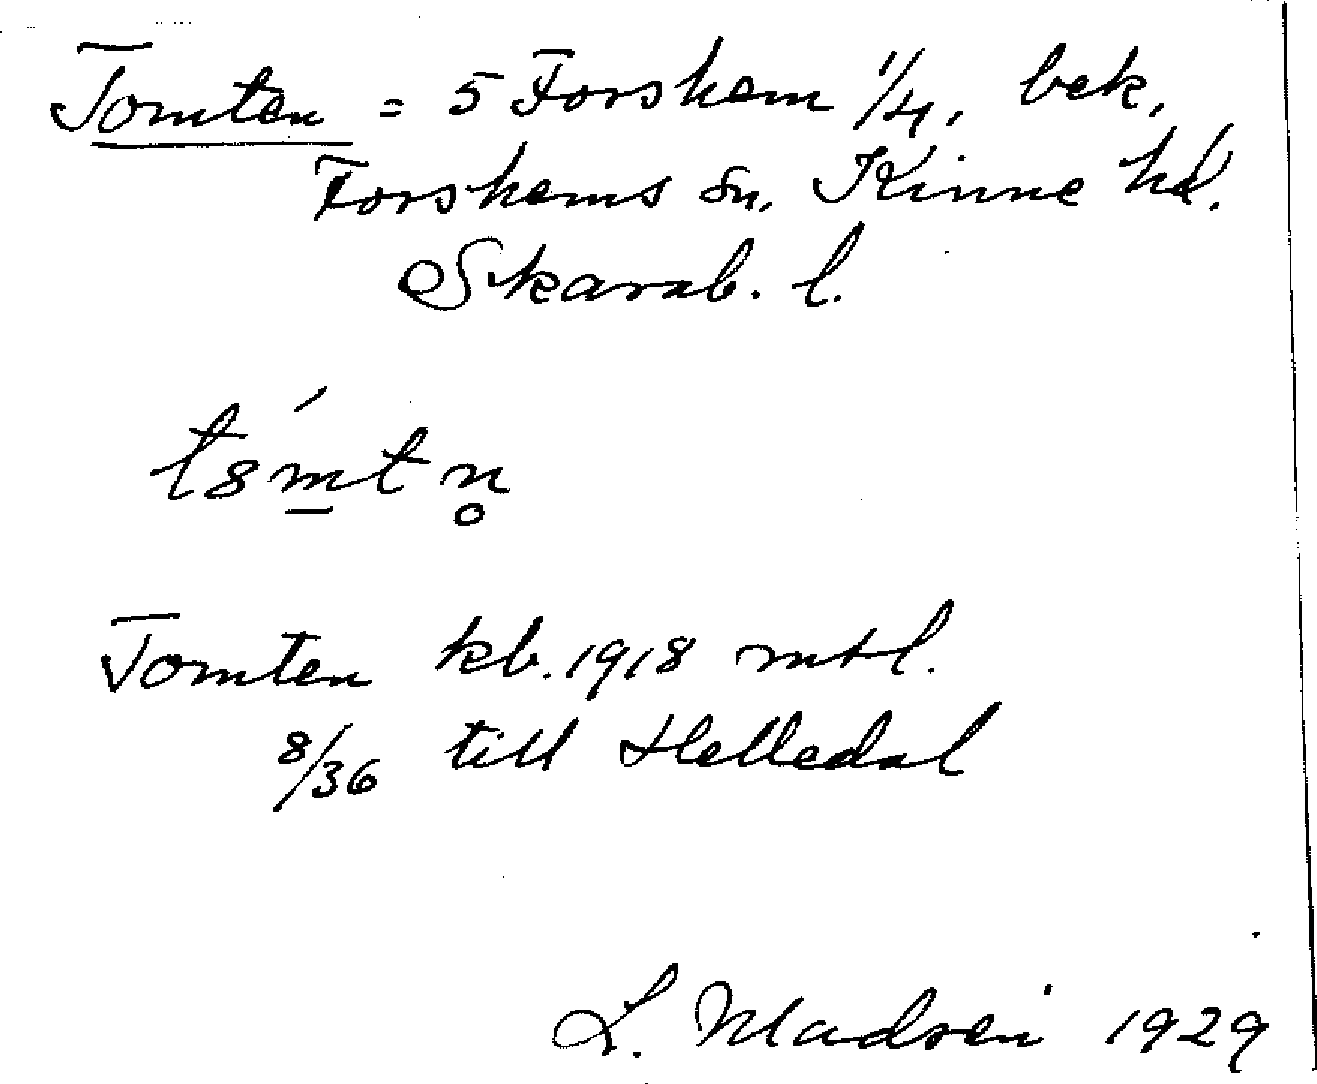 Tomten = 5 Forshem 1/4, bek,
Forshems sn, Kinne hd.
Skarab. l.
t8́m̲tn̥
Tomten kb. 1918 mtl.
8/36 till Helledal
L. Madsen 1929